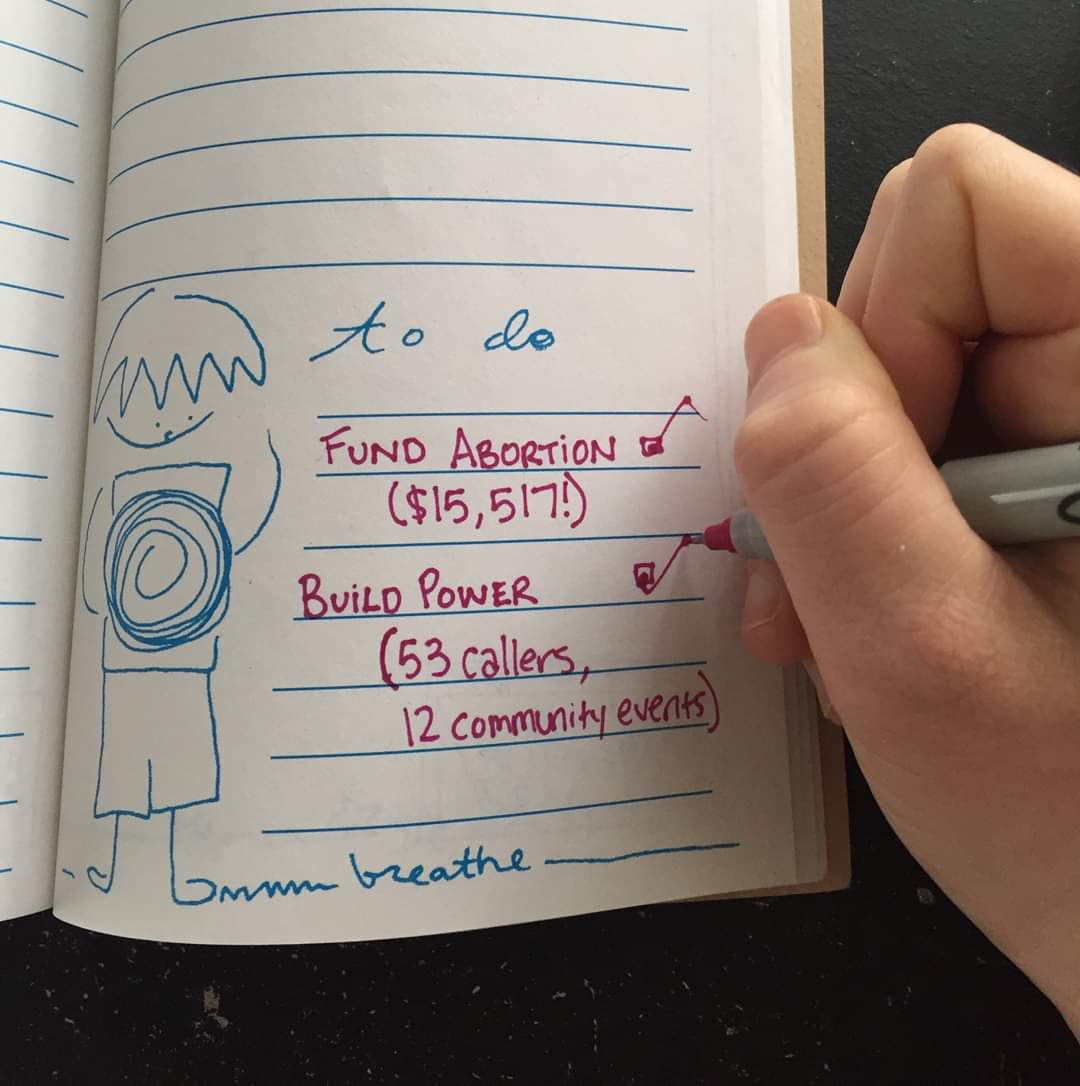 to do
FUND ABORTION
($15,517!)
BUILD POWER
(53 callers,
12 community events)
breathe